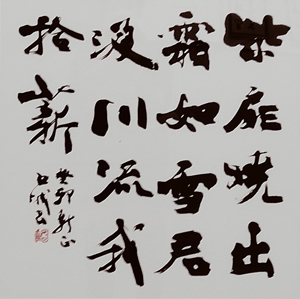 柴扉曉出
霜如雪君
汲川流我
拾薪
癸卯新正